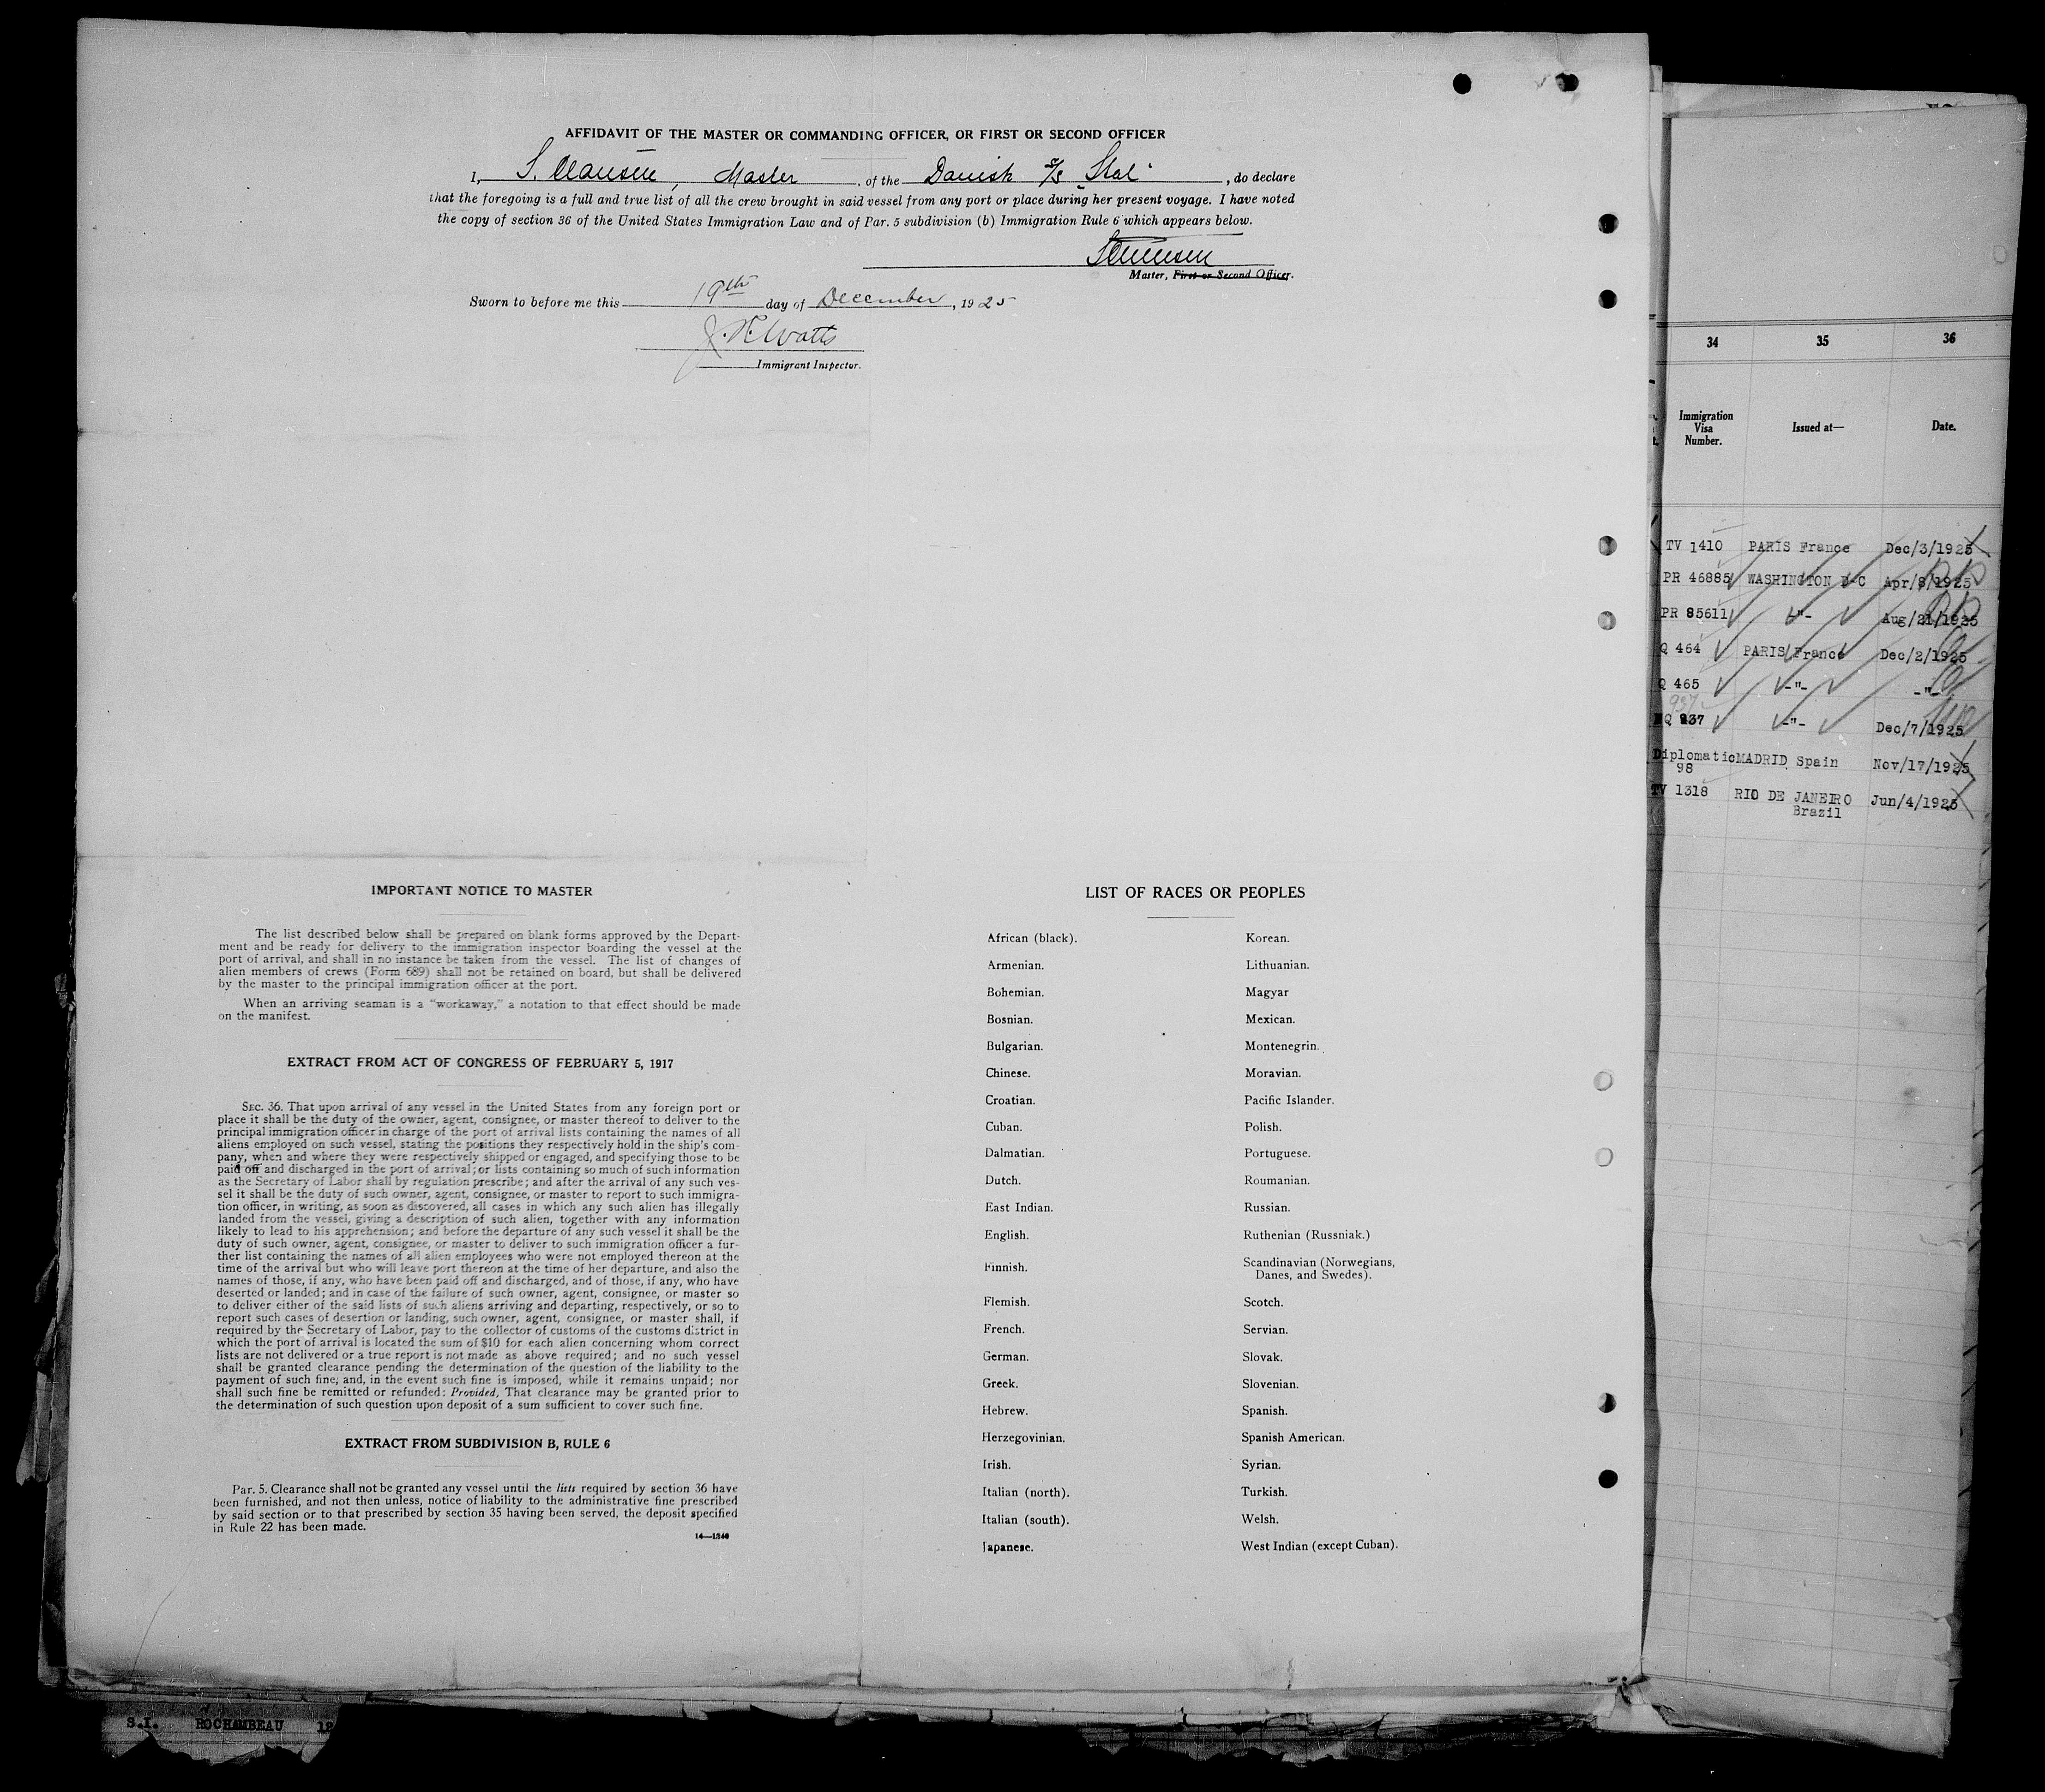 AFFIDAVIT OF THE MASTER OR COMMANDING OFFICER, OR FIRST OR SECOND OFFICER
I, S. Clausen, Master, of the Danish S/S "Stal", do declare
that the foregoing is a full and true list of all the crew brought in said vessel from any port or place during her present voyage. I have noted
the copy of section 36 of the United States Immigration Law and of Par. 5 subdivision (b) Immigration Rule 6 which appears below.
SClausen
Master, First or Second Officer.
Sworn to before me this 19th day of December, 1925
Watts
Immigrant Inspector.
IMPORTANT NOTICE TO MASTER
The list described below shall be prepared on blank forms approved by the Depart-
ment and be ready for delivery to the immigration inspector boarding the vessel at the
port of arrival, and shall in no instance be taken from the vessel. The list of changes of
alien members of crews (Form 689) shall not be retained on board, but shall be delivered
by the master to the principal immigration officer at the port.
When an arriving seaman is a "workaway," a notation to that effect should be made
on the manifest.
EXTRACT FROM ACT OF CONGRESS OF FEBRUARY 5, 1917
SEC. 36. That upon arrival of any vessel in the United States from any foreign port or
place it shall be the duty of the owner, agent, consignee, or master thereof to deliver to the
principal immigration officer in charge of the port of arrival lists containing the names of all
aliens employed on such vessel, stating the positions they respectively hold in the ship's com-
pany, when and where they were respectively shipped or engaged, and specifying those to be
paid off and discharged in the port of arrival; or lists containing so much of such information
as the Secretary of Labor shall by regulation prescribe; and after the arrival of any such ves-
sel it shall be the duty of such owner, agent, consignee, or master to report to such immigra-
tion officer, in writing, as soon as discovered, all cases in which any such alien has illegally
landed from the vessel, giving a description of such alien, together with any information
likely to lead to his apprehension; and before the departure of any such vessel it shall be the
duty of such owner, agent, consignee, or master to deliver to such immigration officer a fur-
ther list containing the names of all alien employees who were not employed thereon at the
time of the arrival but who will leave port thereon at the time of her departure, and also the
names of those, if any, who have been paid off and discharged, and of those, if any, who have
deserted or landed; and in case of the failure of such owner, agent, consignee, or master so
to deliver either of the said lists of such aliens arriving and departing, respectively, or so to
report such cases of desertion or landing, such owner, agent, consignee, or master shall, if
required by the Secretary of Labor, pay to the collector of customs of the customs district in
which the port of arrival is located the sum of $10 for each alien concerning whom correct
lists are not delivered or a true report is not made as above required; and no such vessel
shall be granted clearance pending the determination of the question of the liability to the
payment of such fine, and, in the event such fine is imposed, while it remains unpaid; nor
shall such fine be remitted or refunded: Provided, That clearance may be granted prior to
the determination of such question upon deposit of a sum sufficient to cover such fine.
EXTRACT FROM SUBDIVISION B, RULE 6
Par. 5. Clearance shall not be granted any vessel until the lists required by section 36 have
been furnished, and not then unless, notice of liability to the administrative fine prescribed
by said section or to that prescribed by section 35 having been served, the deposit specified
in Rule 22 has been made.
14—1240
LIST OF RACES OR PEOPLES
African (black).
Armenian.
Bohemian.
Bosnian.
Bulgarian.
Chinese.
Croatian.
Cuban.
Dalmatian.
Dutch.
East Indian.
English.
Finnish.
Flemish.
French.
German.
Greek.
Hebrew.
Herzegovinian.
Irish.
Italian (north).
Italian (south).
Japanese.
Korean.
Lithuanian.
Magyar
Mexican.
Montenegrin.
Moravian.
Pacific Islander.
Polish.
Portuguese.
Roumanian.
Russian.
Ruthenian (Russniak.)
Scandinavian (Norwegians,
Danes, and Swedes).
Scotch.
Servian.
Slovak.
Slovenian.
Spanish.
Spanish American.
Syrian.
Turkish.
Welsh.
West Indian (except Cuban).
34 35 36
Immigration
Visa
Number.
Issued at—
Date.
TV 1410 PARIS France Dec/3/1925
PR 46885 WASHINGTON D-C Apr/8/1925
PR 85611 -"- Aug/21/1925
Q 464 PARIS France Dec/2/1925
Q 465 -"- -"-
937
NQ 937 -"- Dec/7/1925
Diplomatic MADRID Spain Nov/17/1925
98
TV 1318 RIO DE JANEIRO Jun/4/1925
Brazil
S.I. ROCHAMBEAU 12